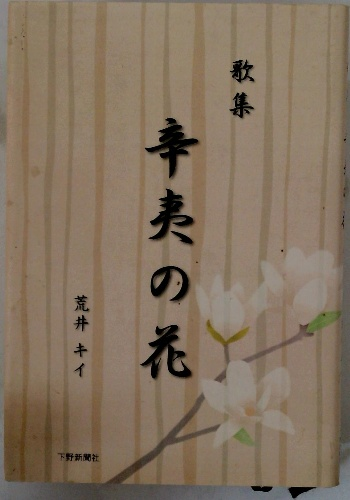 歌集
辛夷の花
荒井 キイ
下野新聞社